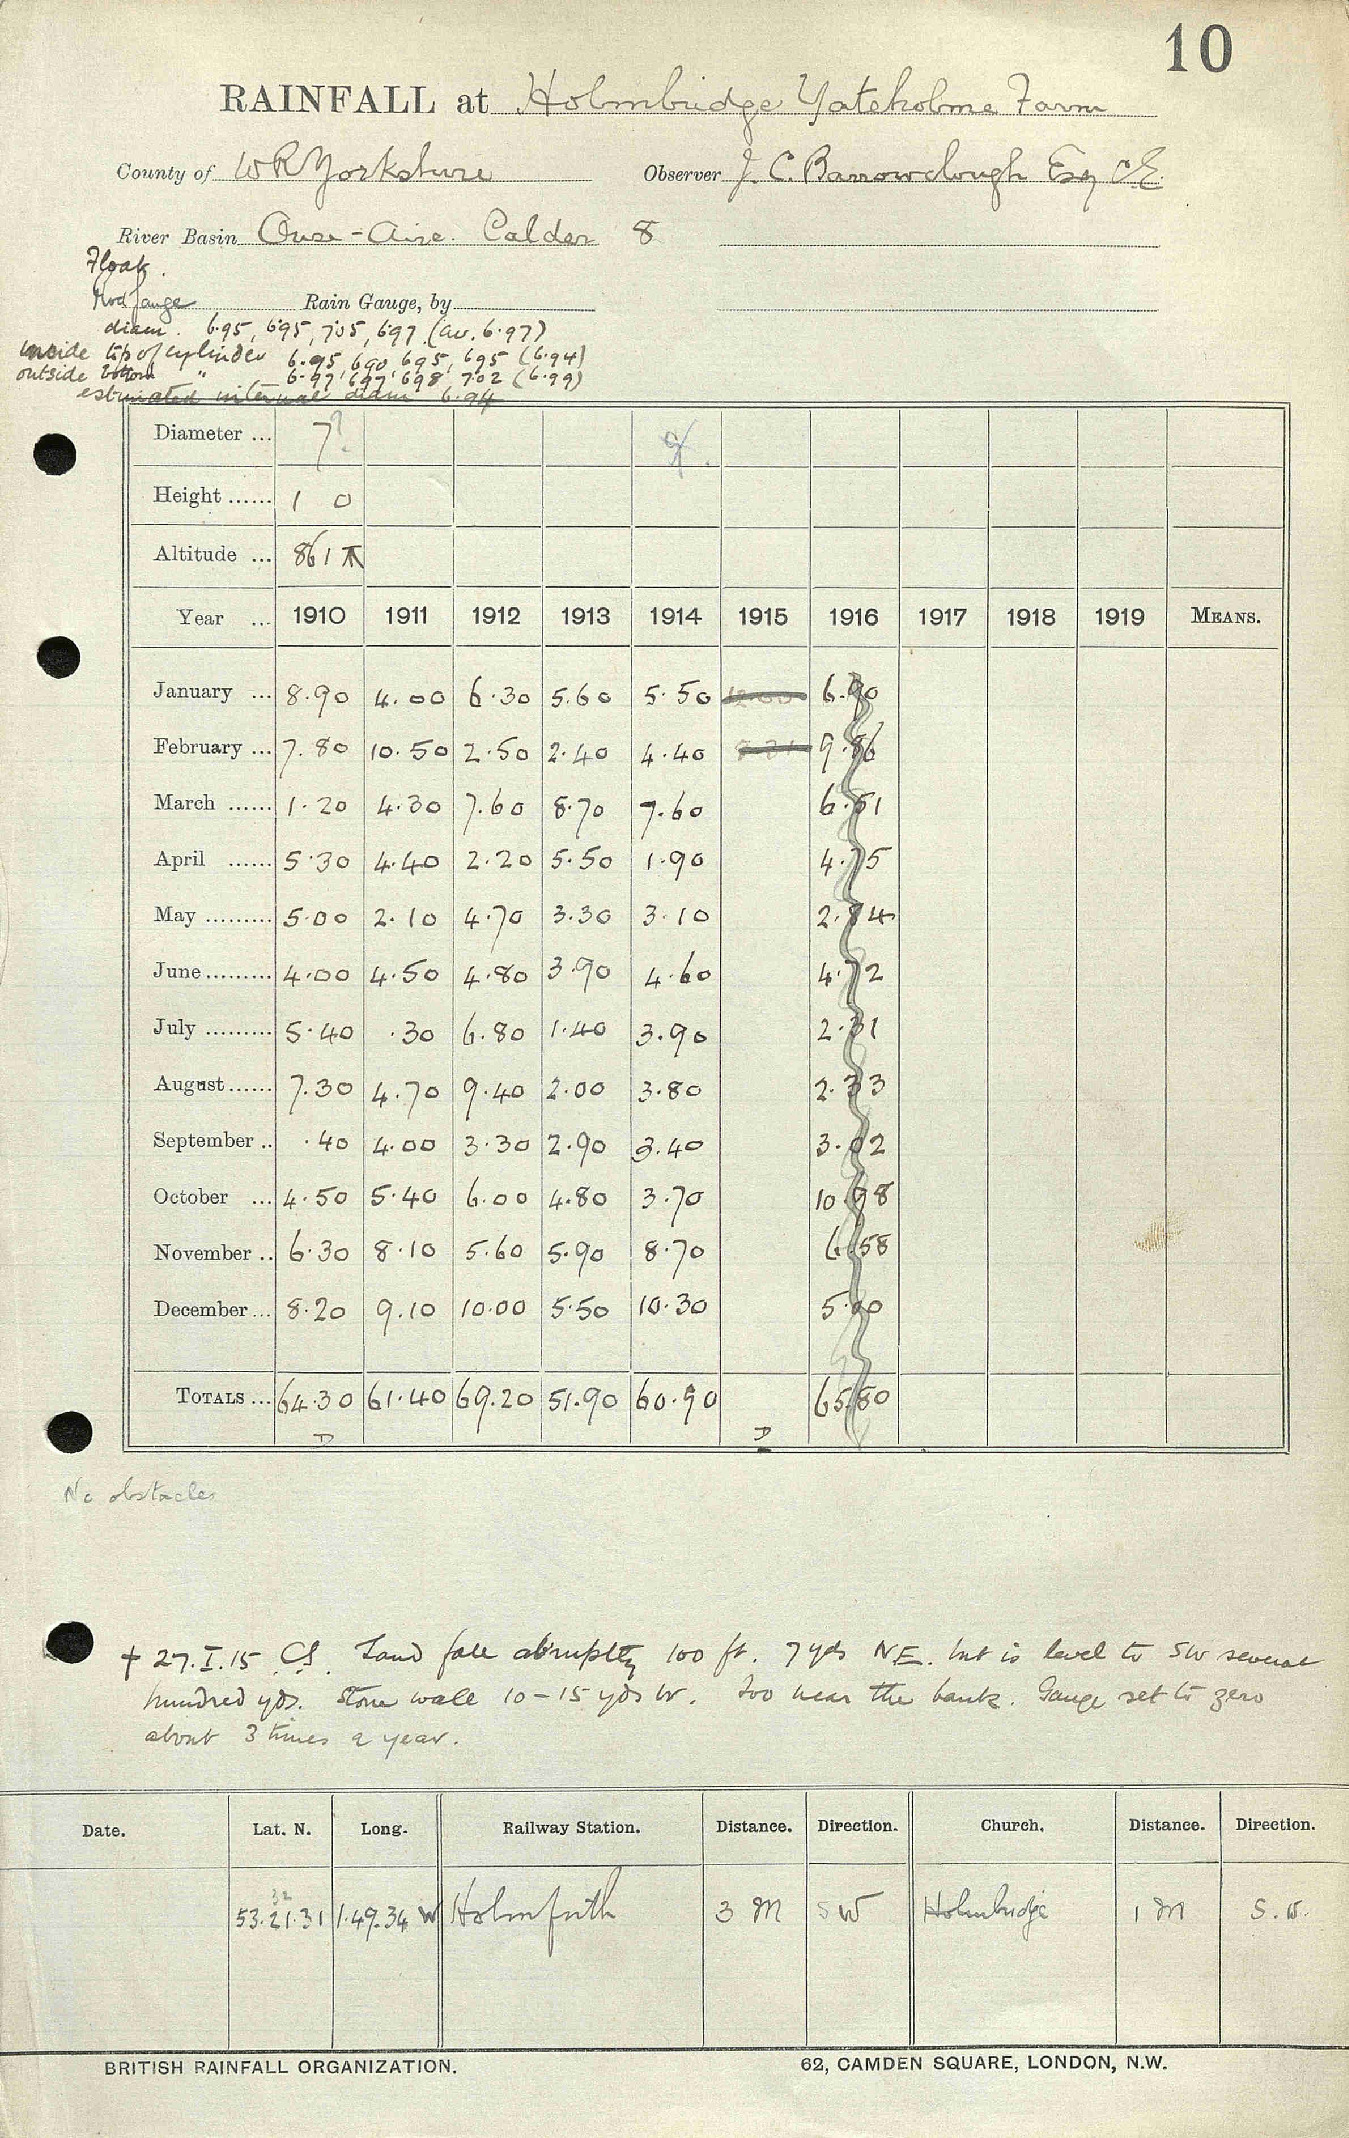 10
RAINFALL at Holmbridge Yateholme Farm
County of W R Yorkshire Observer J. C. Barrowclough Esq C E
River Basin Ouse - Aire. Calder 8
Float
Rod gauge Rain Gauge, by
diam. 6.95, 6.95, 7.05, 6.97 (av. 6.97)
inside top of cylinder 6.95 6.90 6.95, 6.95 (6.94)
outside bottom " 6.97, 6.97, 6.98, 7.02 (6.99)
estimated internal diam 6.94
Diameter ... 7?
Height ...... 1 0
Altitude ... 861
Year ... 1910 1911 1912 1913 1914 1915 1916 1917 1918 1919 MEANS.
January ... 8.90 4.00 6.30 5.60 5.50 6.90
February ... 7.80 10.50 2.50 2.40 4.40 9.86
March ...... 1.20 4.30 7.60 8.70 7.60 6.51
April ...... 5.30 4.40 2.20 5.50 1.90 4.75
May ......... 5.00 2.10 4.70 3.30 3.10 2.84
June ......... 4.00 4.50 4.80 3.90 4.60 4.72
July ......... 5.40 .30 6.80 1.40 3.90 2.31
August ...... 7.30 4.70 9.40 2.00 3.80 2.33
September .. .40 4.00 3.30 2.90 3.40 3.02
October ... 4.50 5.40 6.00 4.80 3.70 10.98
November .. 6.30 8.10 5.60 5.90 8.70 6.58
December ... 8.20 9.10 10.00 5.50 10.30 5.00
TOTALS ... 64.30 61.40 69.20 51.90 60.90 65.80
D D
No obstacles
† 27.I.15 CS. Land fall abruptly 100 ft. 7 yds NE. but is level to SW several
hundred yds. Stone wall 10-15 yds W. Too near the bank. Gauge set to zero
about 3 times a year.
Date. Lat. N. Long. Railway Station. Distance. Direction. Church. Distance. Direction.
32
53.21.31 1.49.34 W Holmfirth 3 M SW Holmbridge 1 M S.W.
BRITISH RAINFALL ORGANIZATION. 62, CAMDEN SQUARE, LONDON, N.W.